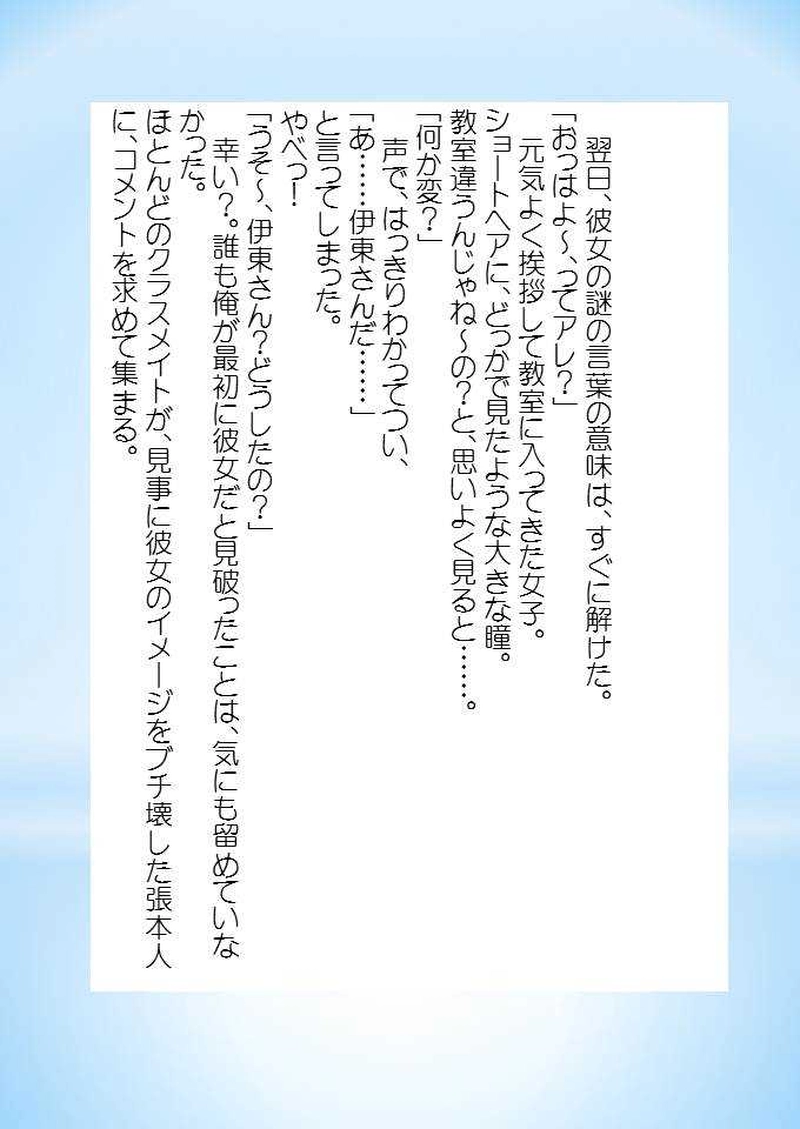 翌日、彼女の謎の言葉の意味は、すぐに解けた。
「おっはよ～、ってアレ？」
　元気よく挨拶して教室に入ってきた女子。
ショートヘアに、どっかで見たような大きな瞳。
教室違うんじゃね～の？と、思いよく見ると……。
「何か変？」
　声で、はっきりわかってつい、
「あ……伊東さんだ……」
と言ってしまった。
やべっ！
「うそ～、伊東さん？どうしたの？」
　幸い？。誰も俺が最初に彼女だと見破ったことは、気にも留めていな
かった。
ほとんどのクラスメイトが、見事に彼女のイメージをブチ壊した張本人
に、コメントを求めて集まる。